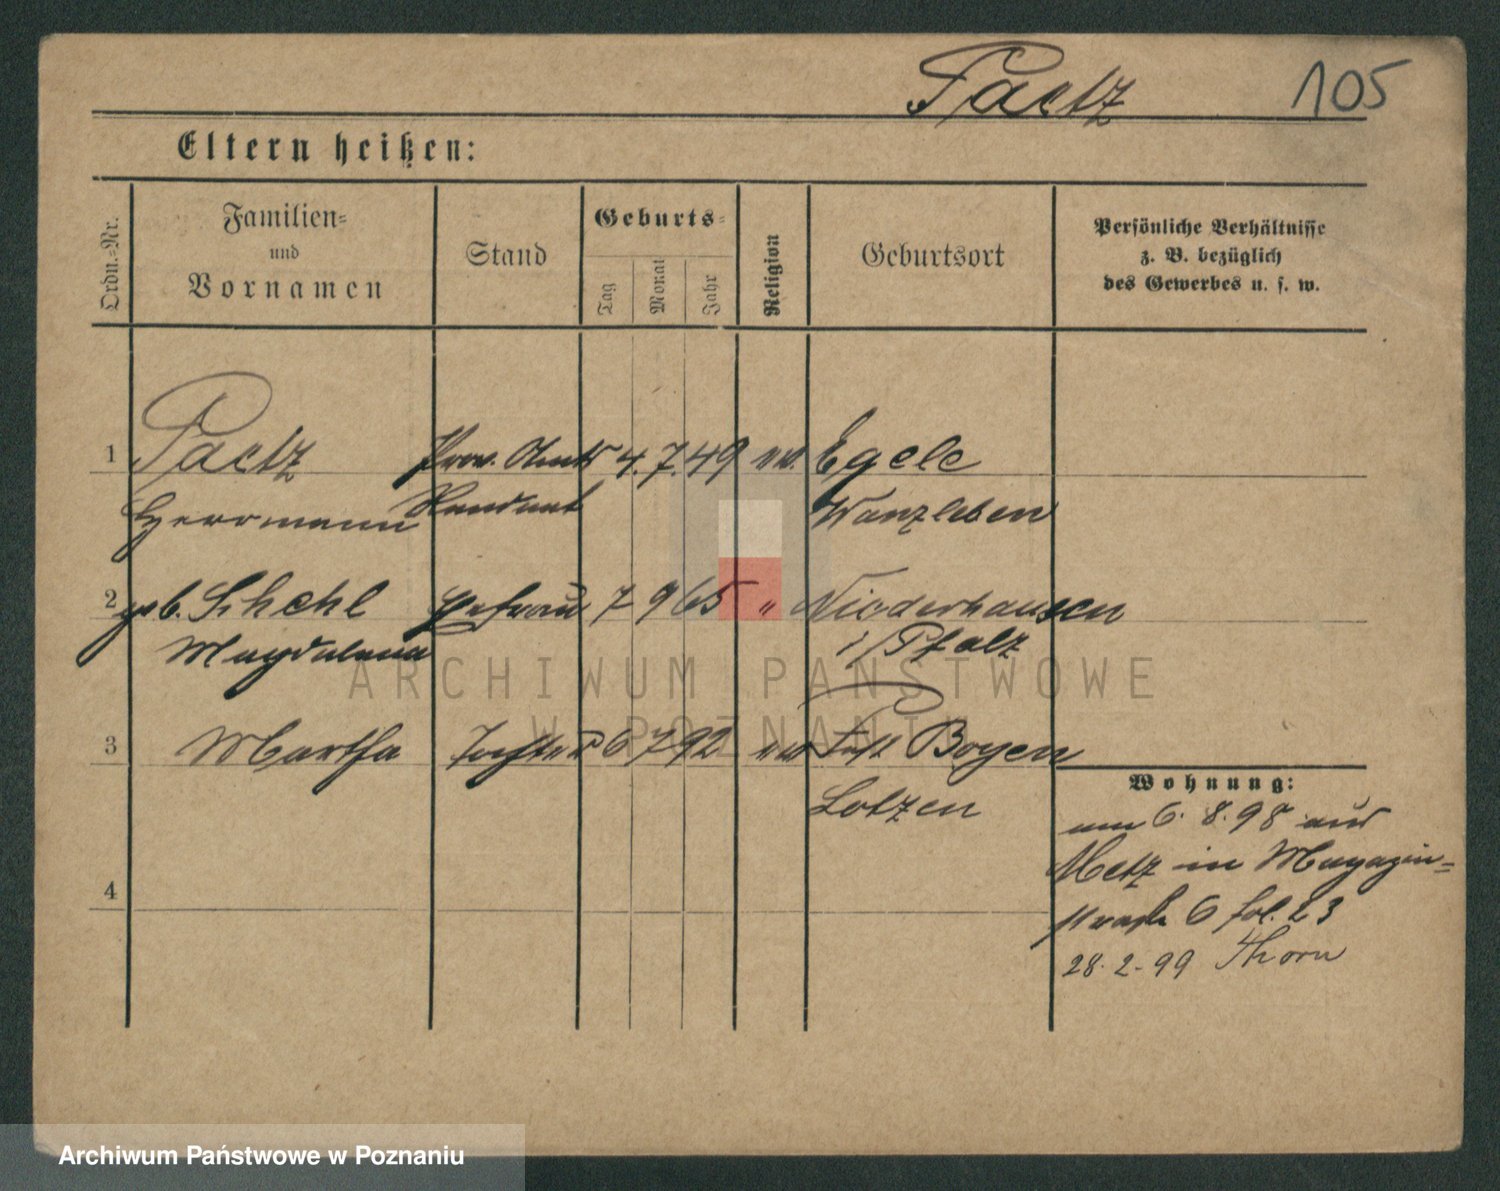 Paetz 105
Eltern heißen:
Ordn.=Nr.
Familien=
und
Vornamen
Stand
Geburts=
Tag
Monat
Jahr
Religion
Geburtsort
Persönliche Verhältnisse
z. B. bezüglich
des Gewerbes u. s. w.
1 Paetz Prov. Amts 4. 7. 49 ev. Egeln
Herrmann Rendant Wanzleben
2 geb. Ehefrau 7 9 65 " Niederhausen
Magdalena i/Pfalz
3 Martha Tochter 6 7 92 ev Fest Boyen
Lotzen
4
Wohnung:
am 6. 8. 98 aus
Metz in Magazin=
straße 6 fol. 23
28. 2. 99 Thorn
ARCHIWUM PAŃSTWOWE
W POZNANIU
Archiwum Państwowe w Poznaniu